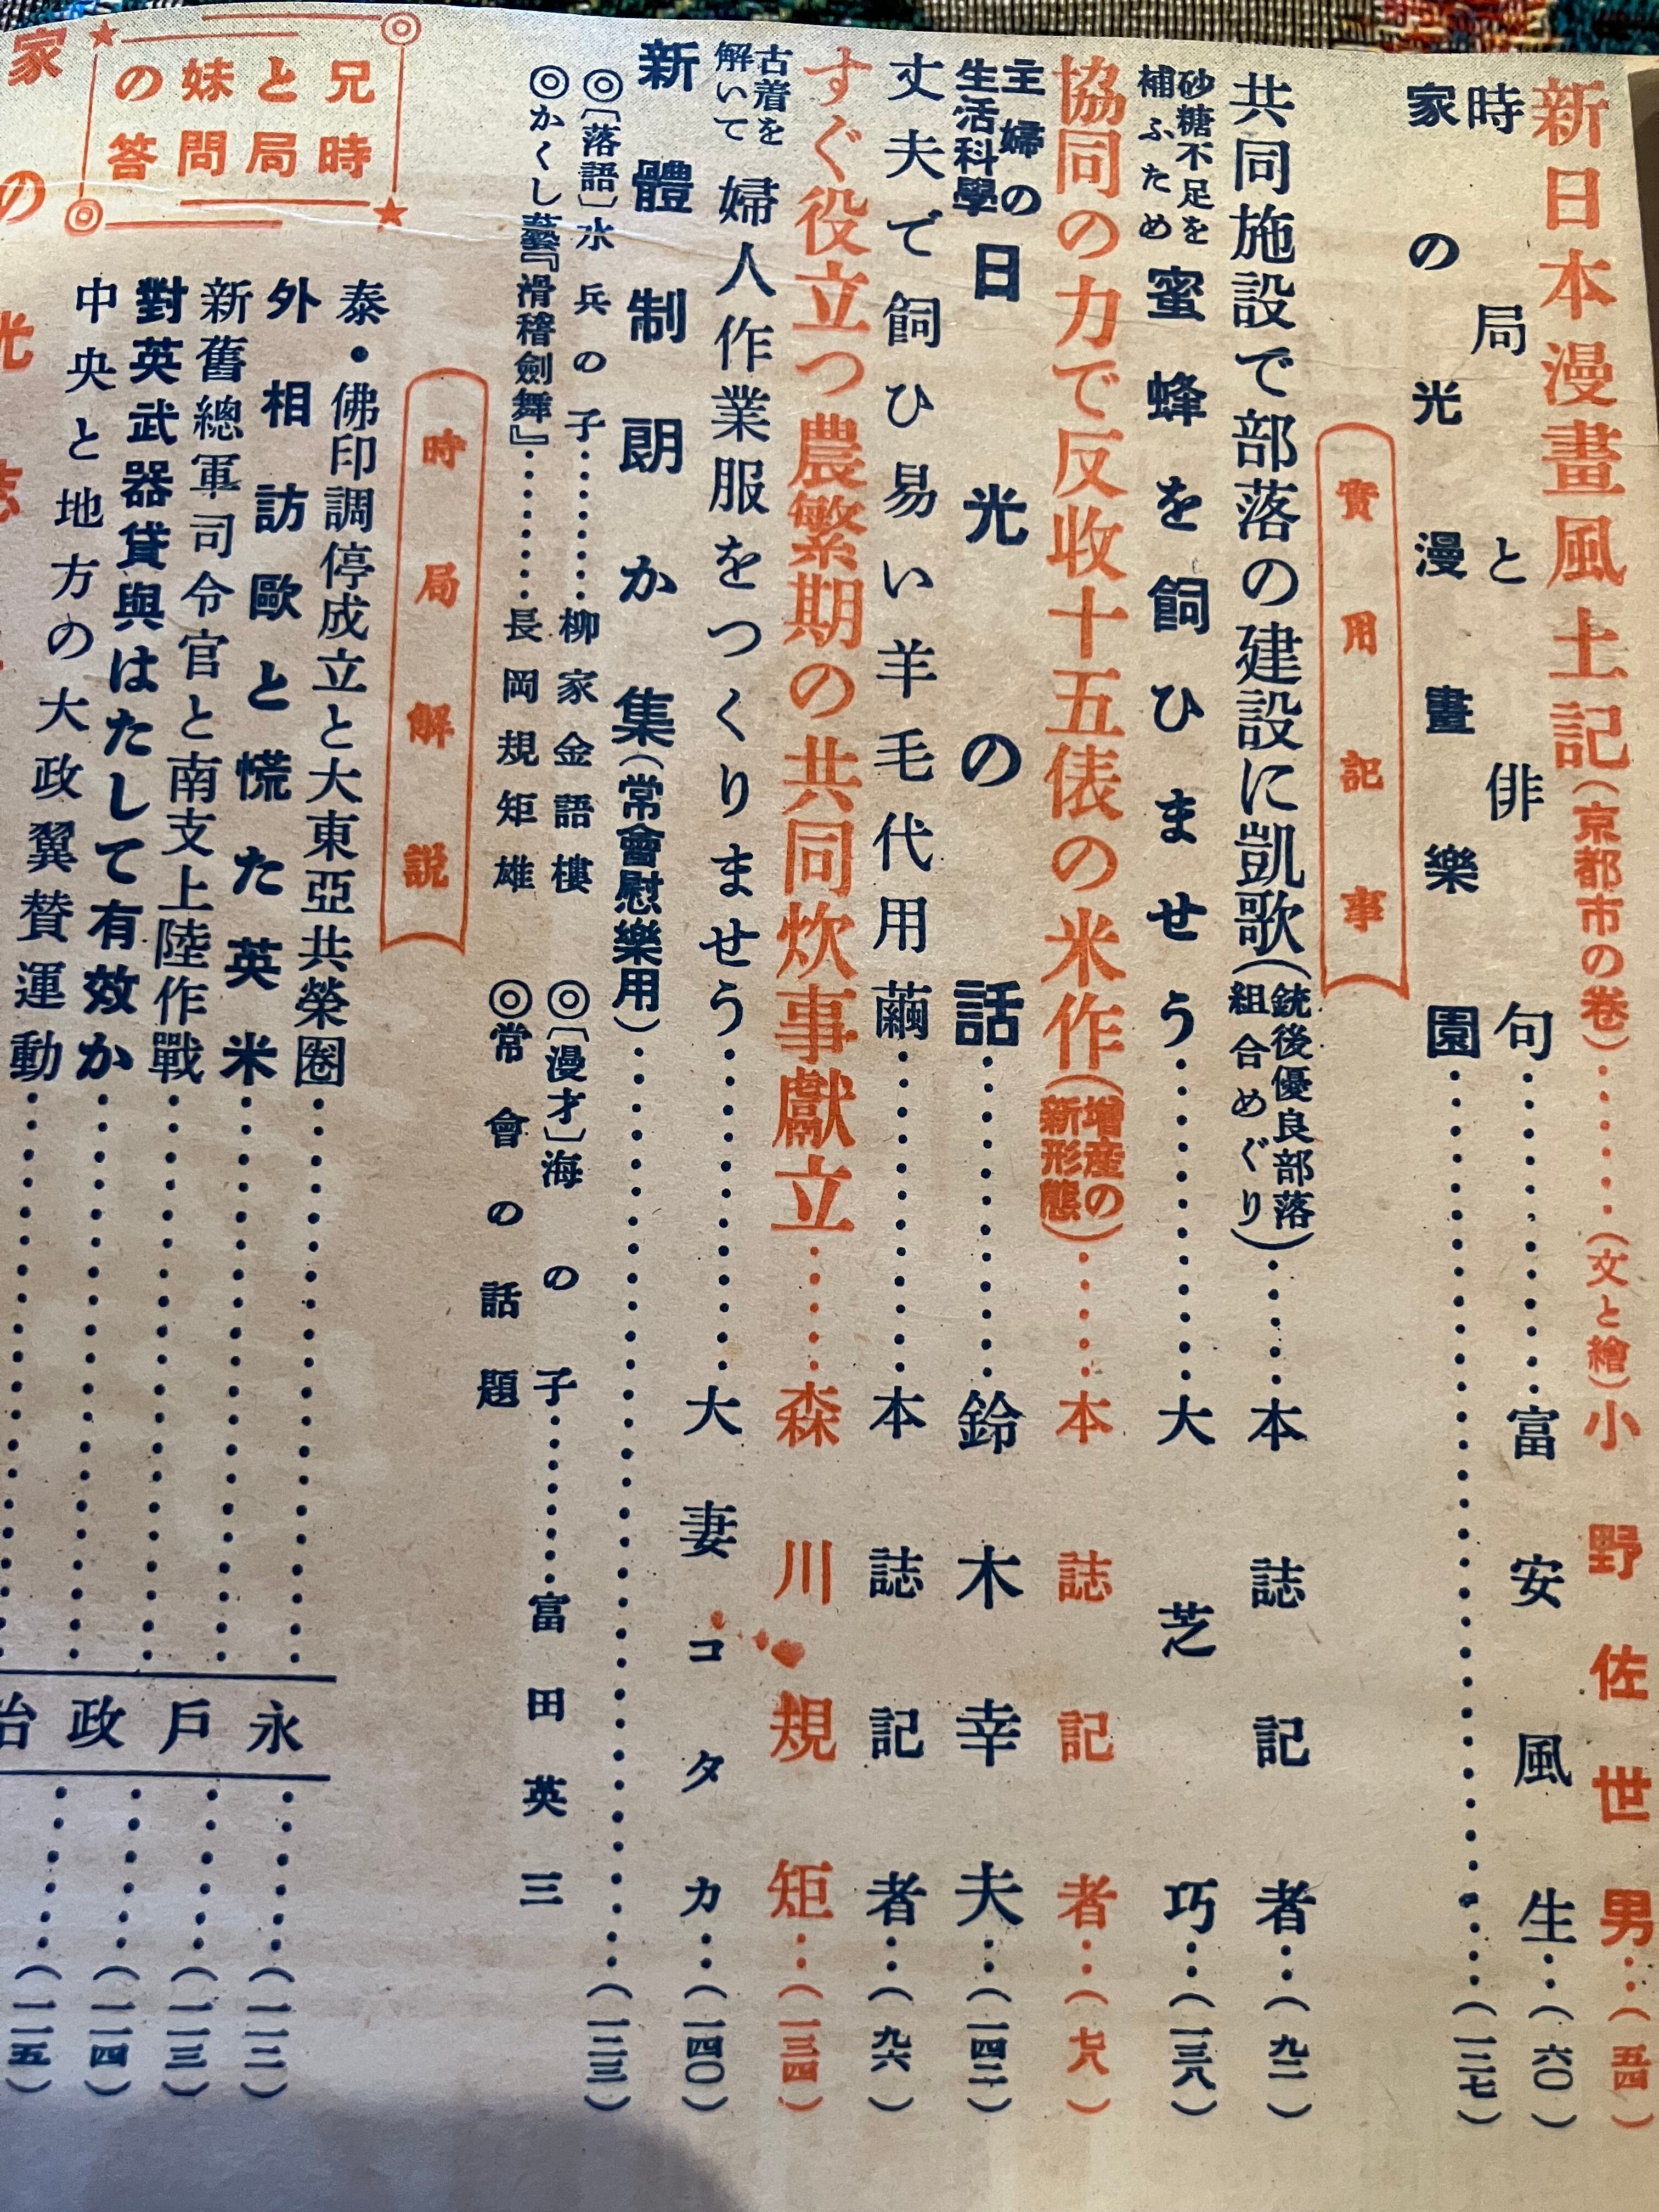 新日本漫畫風土記(京都市の卷)……(文と繪)小野佐世男…(五四)
時局と俳句……富安風生…(六〇)
家の光漫畫樂園……(一二七)
實用記事
共同施設で部落の建設に凱歌(銃後優良部落組合めぐり)……本誌記者…(九二)
砂糖不足を補ふため 蜜蜂を飼ひませう……大芝巧…(一三八)
協同の力で反收十五俵の米作(增産の新形態)……本誌記者…(七八)
主婦の生活科學 日光の話……鈴木幸夫…(一四二)
丈夫で飼ひ易い羊毛代用繭……本誌記者…(九六)
すぐ役立つ農繁期の共同炊事獻立……森川規矩…(一三四)
古着を解いて 婦人作業服をつくりませう……大妻コタカ…(一四〇)
新體制朗か集(常會慰樂用)……(一二三)
◎〔落語〕水兵の子……柳家金語樓 ◎〔漫才〕海の子……富田英三
◎かくし藝『滑稽劍舞』……長岡規矩雄 ◎常會の話題
時局解説
泰・佛印調停成立と大東亞共榮圈……永…(一一二)
外相訪歐と慌た英米……
新舊總軍司令官と南支上陸作戰……戶…(一一三)
對英武器貸與はたして有效か……政…(一一四)
中央と地方の大政翼贊運動……治…(一一五)
兄と妹の時局問答
家の光誌